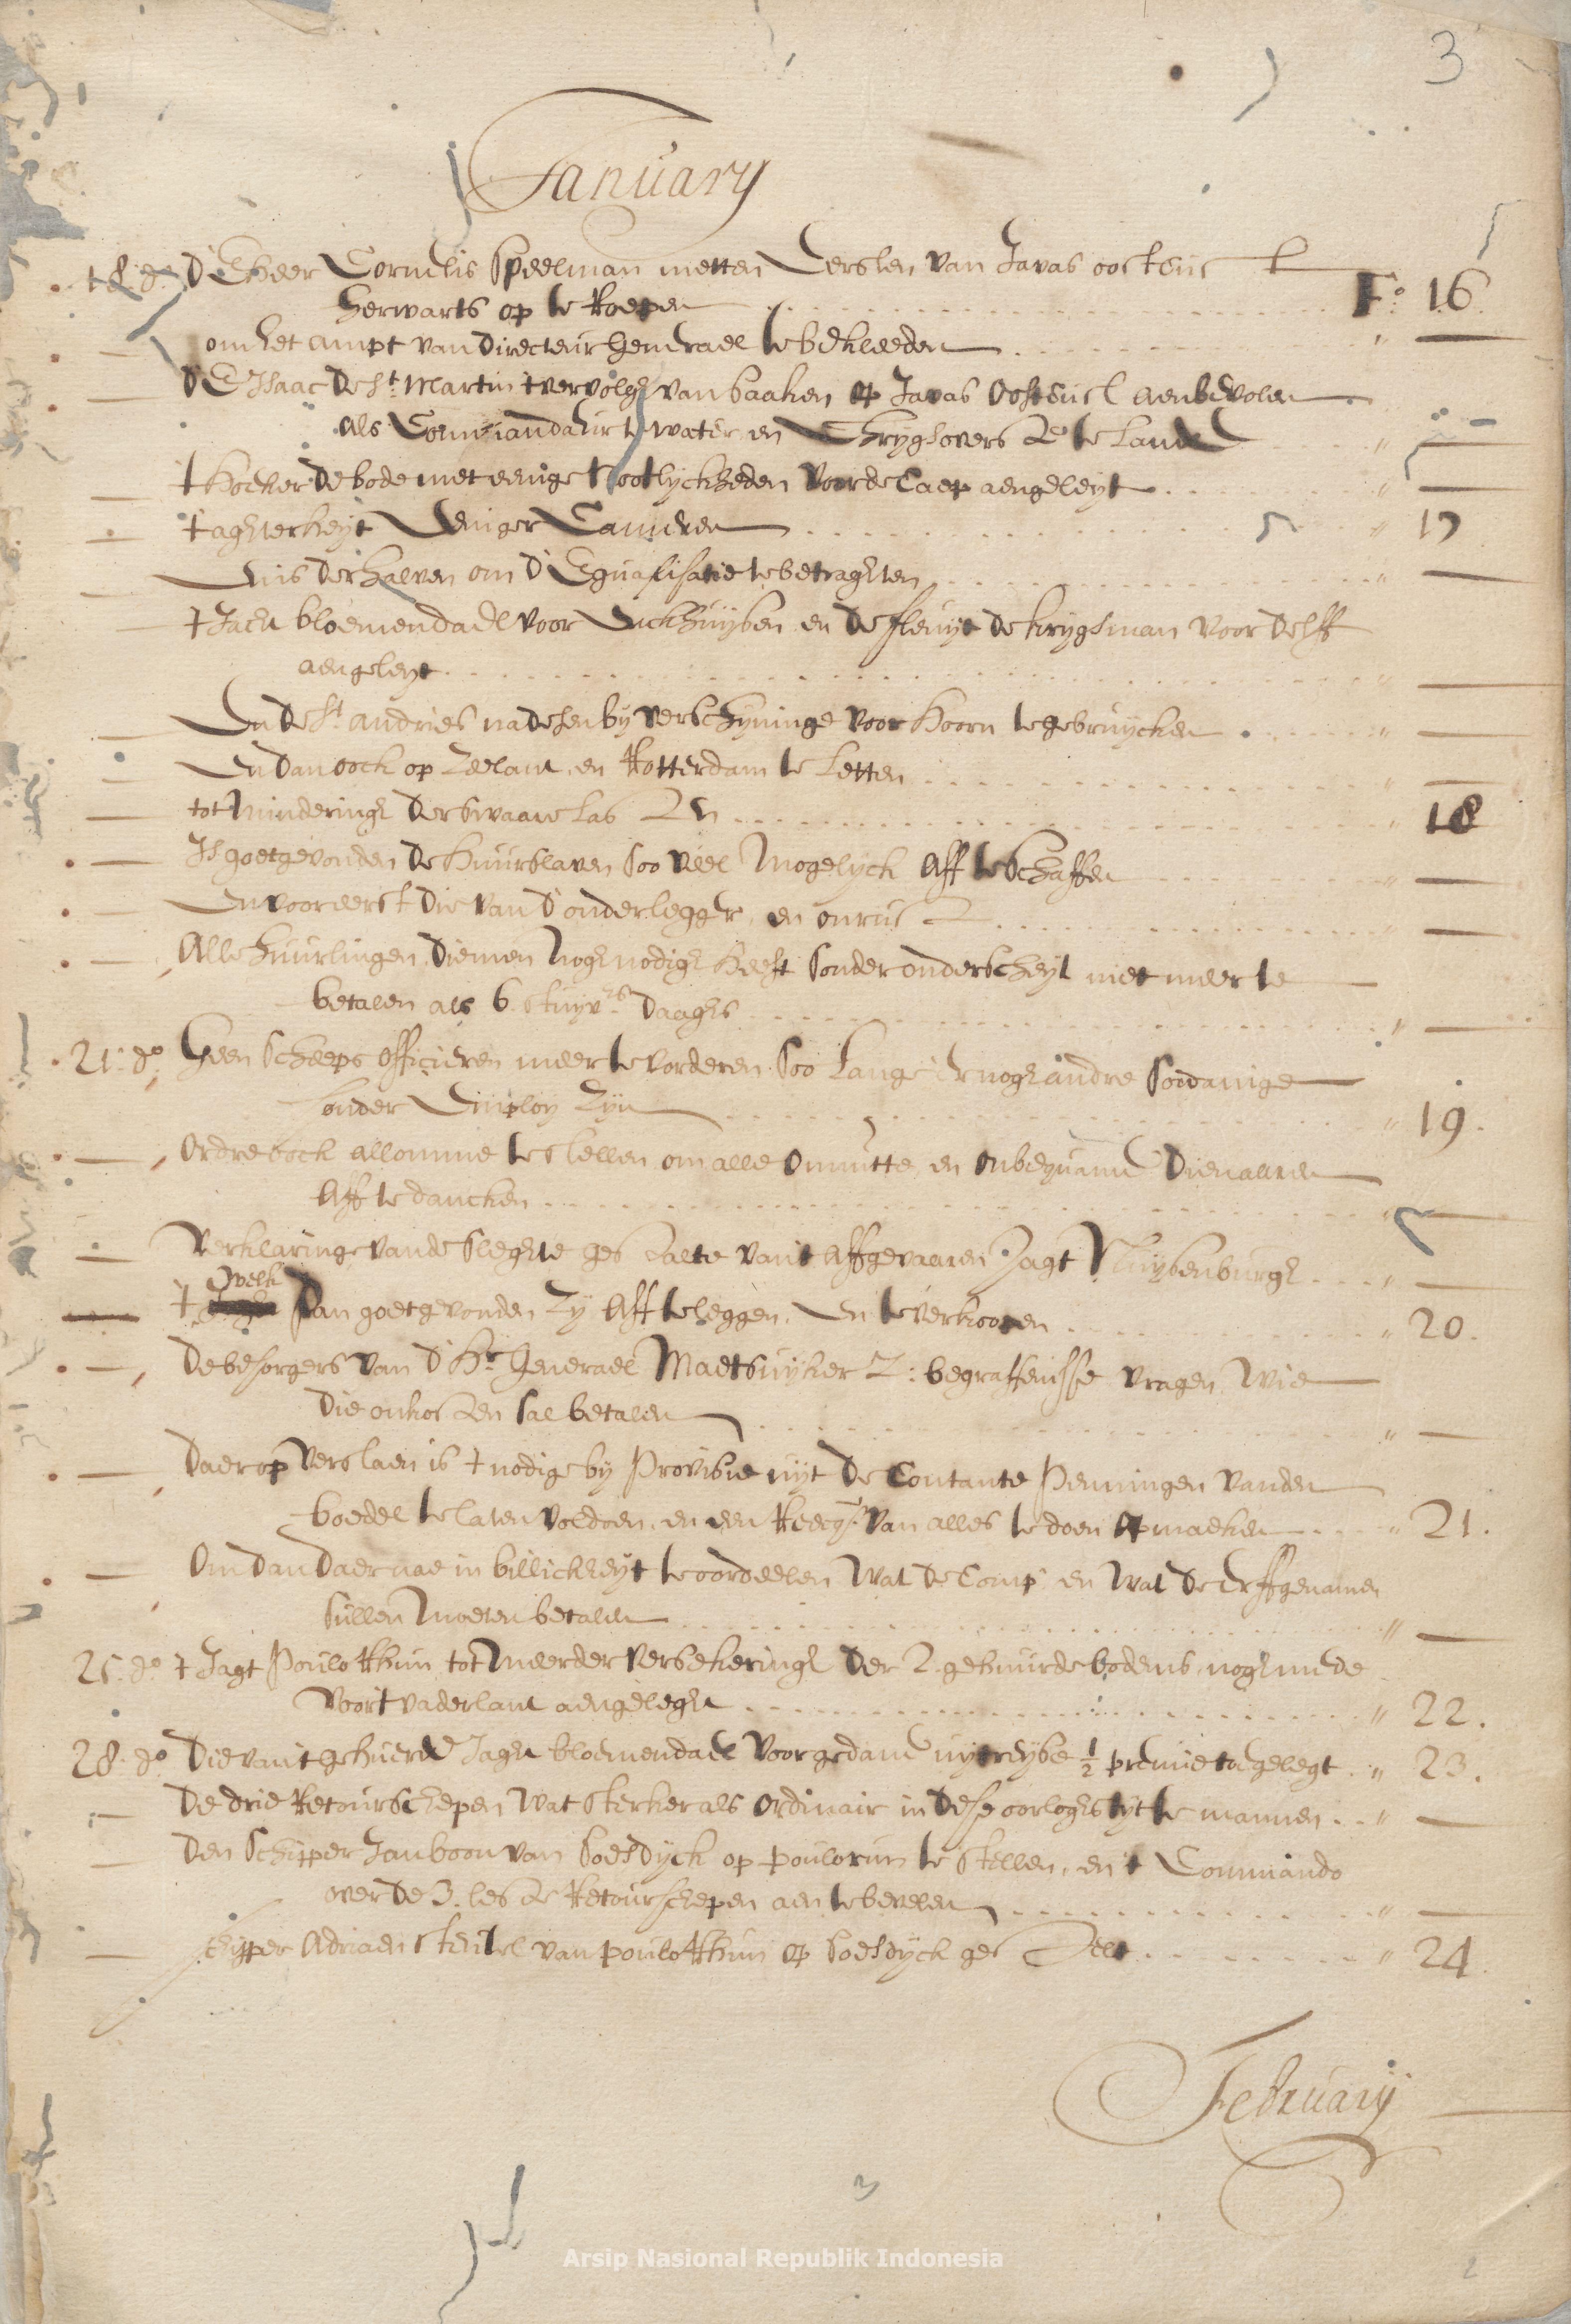 3
January
18: do. D' E heer Cornelis Speelman metten Eersten van Javas oostcust F:o 16.
herwarts op te Roepen
— om het ampt van Directeur Generael te bekleeden —
— D' E Isaac de St. Martin t vervolgh van saaken op Javas Oostcust aenbevolen
als Commandeur te water en Krijghsoverste te Lande —
— t Hoeker de bode met eenige Nootlyckheden voor de Caep aengeleyt —
— t aghterheyt Eeniger Cameren " 17
— Enis derhalven om d' Egualisatie te betraghten " —
— t Jacht bloemendael voor Enckhuysen en de fleuyt de krygsman voor Delff
aengeleyt " —
— En de St. andries na desen by verschyninge voor Hoorn te gebruycken " —
— En dan oock op Zeelant en Rotterdam te Letten —
— tot Minderingh der swaare Las ten " 18
— Is goetgevonden de Huurslaven soo veel Mogelyck Aff te schaffen " —
— En vooreerst die van d' onderlegger en onrust " —
— Alle huurlingen diemen nogh nodigh heeft sonder onderscheyt niet meer te
betalen als 6 stuyvrs. Daaghs " —
21: do. Geen scheeps officieren meer te vorderen soo Lange er nogh andre sodanige
sonder Employ zyn " 19.
— Ordre oock allomme te stellen om alle Onnutte en onbequame Dienaaren
Aff te dancken " —
— Verklaringe vande sleghte gestalte van t Affgevaaren Jagt Muysenburgh " —
— t Welk dan goetgevonden zy Aff te leggen, En te verkoopen " 20.
— De besorgers van d' Hr. Generael Maetsuyker Z: begraffenisse vragen Wie
Die onkosten sal betalen " —
— Daer op verstaen is t nodige by Provisie uyt De Contante Penningen vanden
boedel te laten voldoen, en een Reecq: van alles te doen Opmaeken " 21.
— Om dan daer nae in billickheyt te oordeelen Wat de Comp. en Wat de Erffgenamen
sullen Moeten betalen " —
25. do. t Jagt Poulo Rhun tot Meerder versekeringh der 2 gehuurde bodems nogh mede
voor t vaderlant aengelegt " 22.
28. do. Die van t gehuerde Jagt bloemendael voor gedane uytreyse 1/2 premie toegelegt " 23.
— De drie Retourschepen Wat sterker als Ordinair in dese oorloghstyt te mannen " —
— Den Schipper Jan boon van Soesdyck op poulorun te stellen, en t Commando
over de 3. leste Retourschepen aen te bevelen " —
— schipper Adriaen van poulo Rhun op Soesdyck gestelt " 24
February
3
Arsip Nasional Republik Indonesia